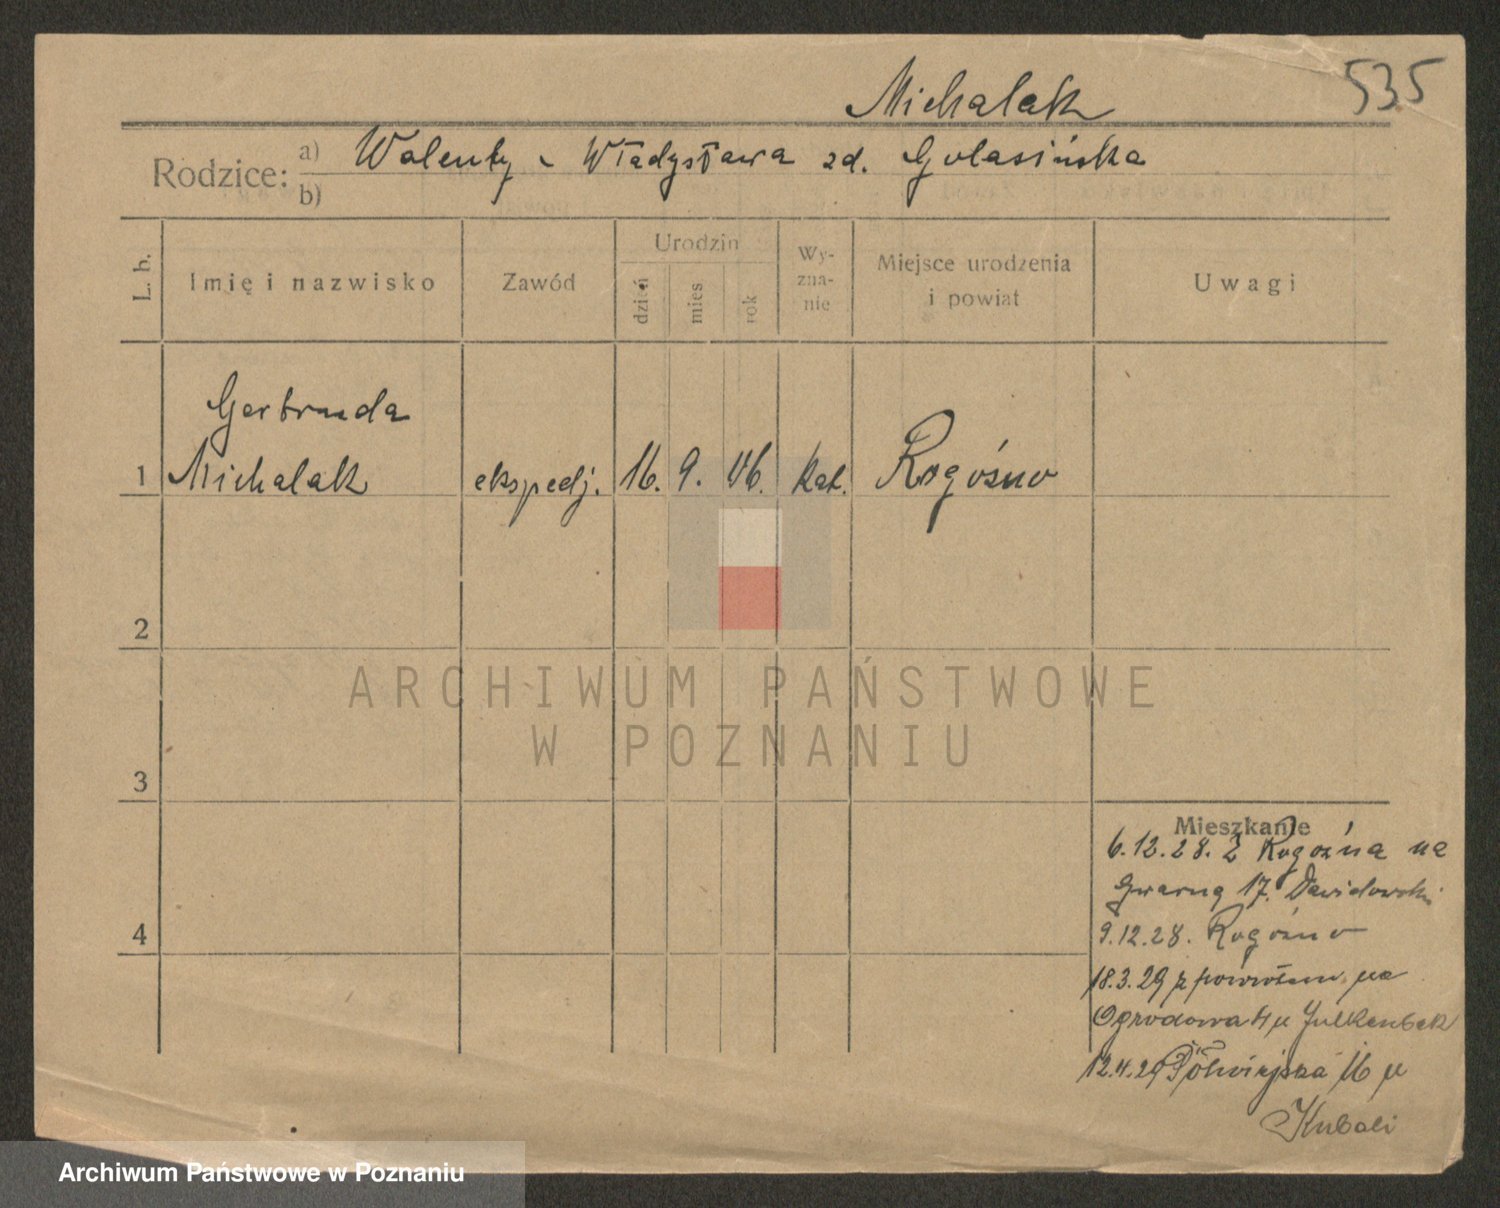 535
Michalak
Rodzice: a) Walenty - Władysława zd. Golasińska
b)
L. b. Imię i nazwisko Zawód Urodzin dzień mies rok Wy-zna-nie Miejsce urodzenia i powiat Uwagi
Gertruda
1 Michalak ekspedj. 16. 9. 06. kat. Rogóźno
2
ARCHIWUM PAŃSTWOWE
W POZNANIU
3
Mieszkanie
6.12.28. z Rogoźna na
Gwarną 17. Dawidowski
4
9.12.28. Rogóźno
18.3.29 z powrotem na
Ogrodowa 4 u Julkenbek
12.4.29 Półwiejska 16 u
Kubali
Archiwum Państwowe w Poznaniu